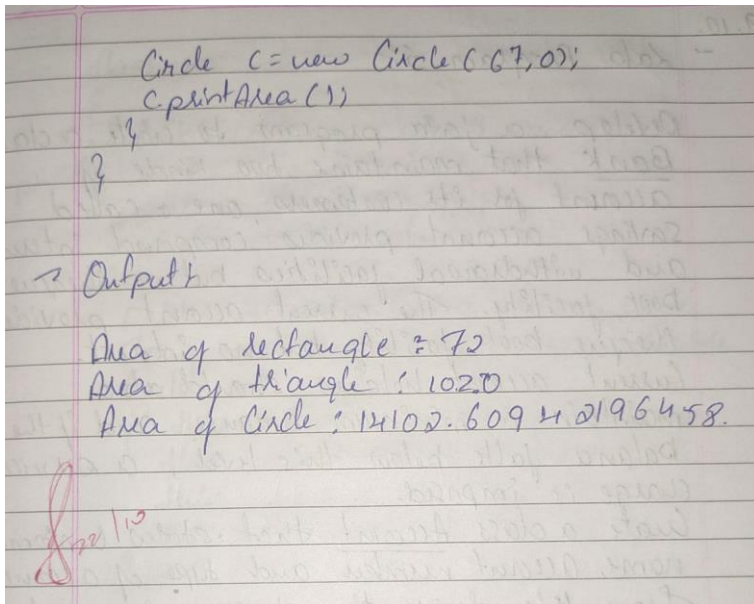 Circle c = new Circle (67,0);
c.printArea ();
}
}
→ Output :
Area of rectangle : 72
Area of triangle : 102.0
Area of Circle : 14102.60942196458.
22/10